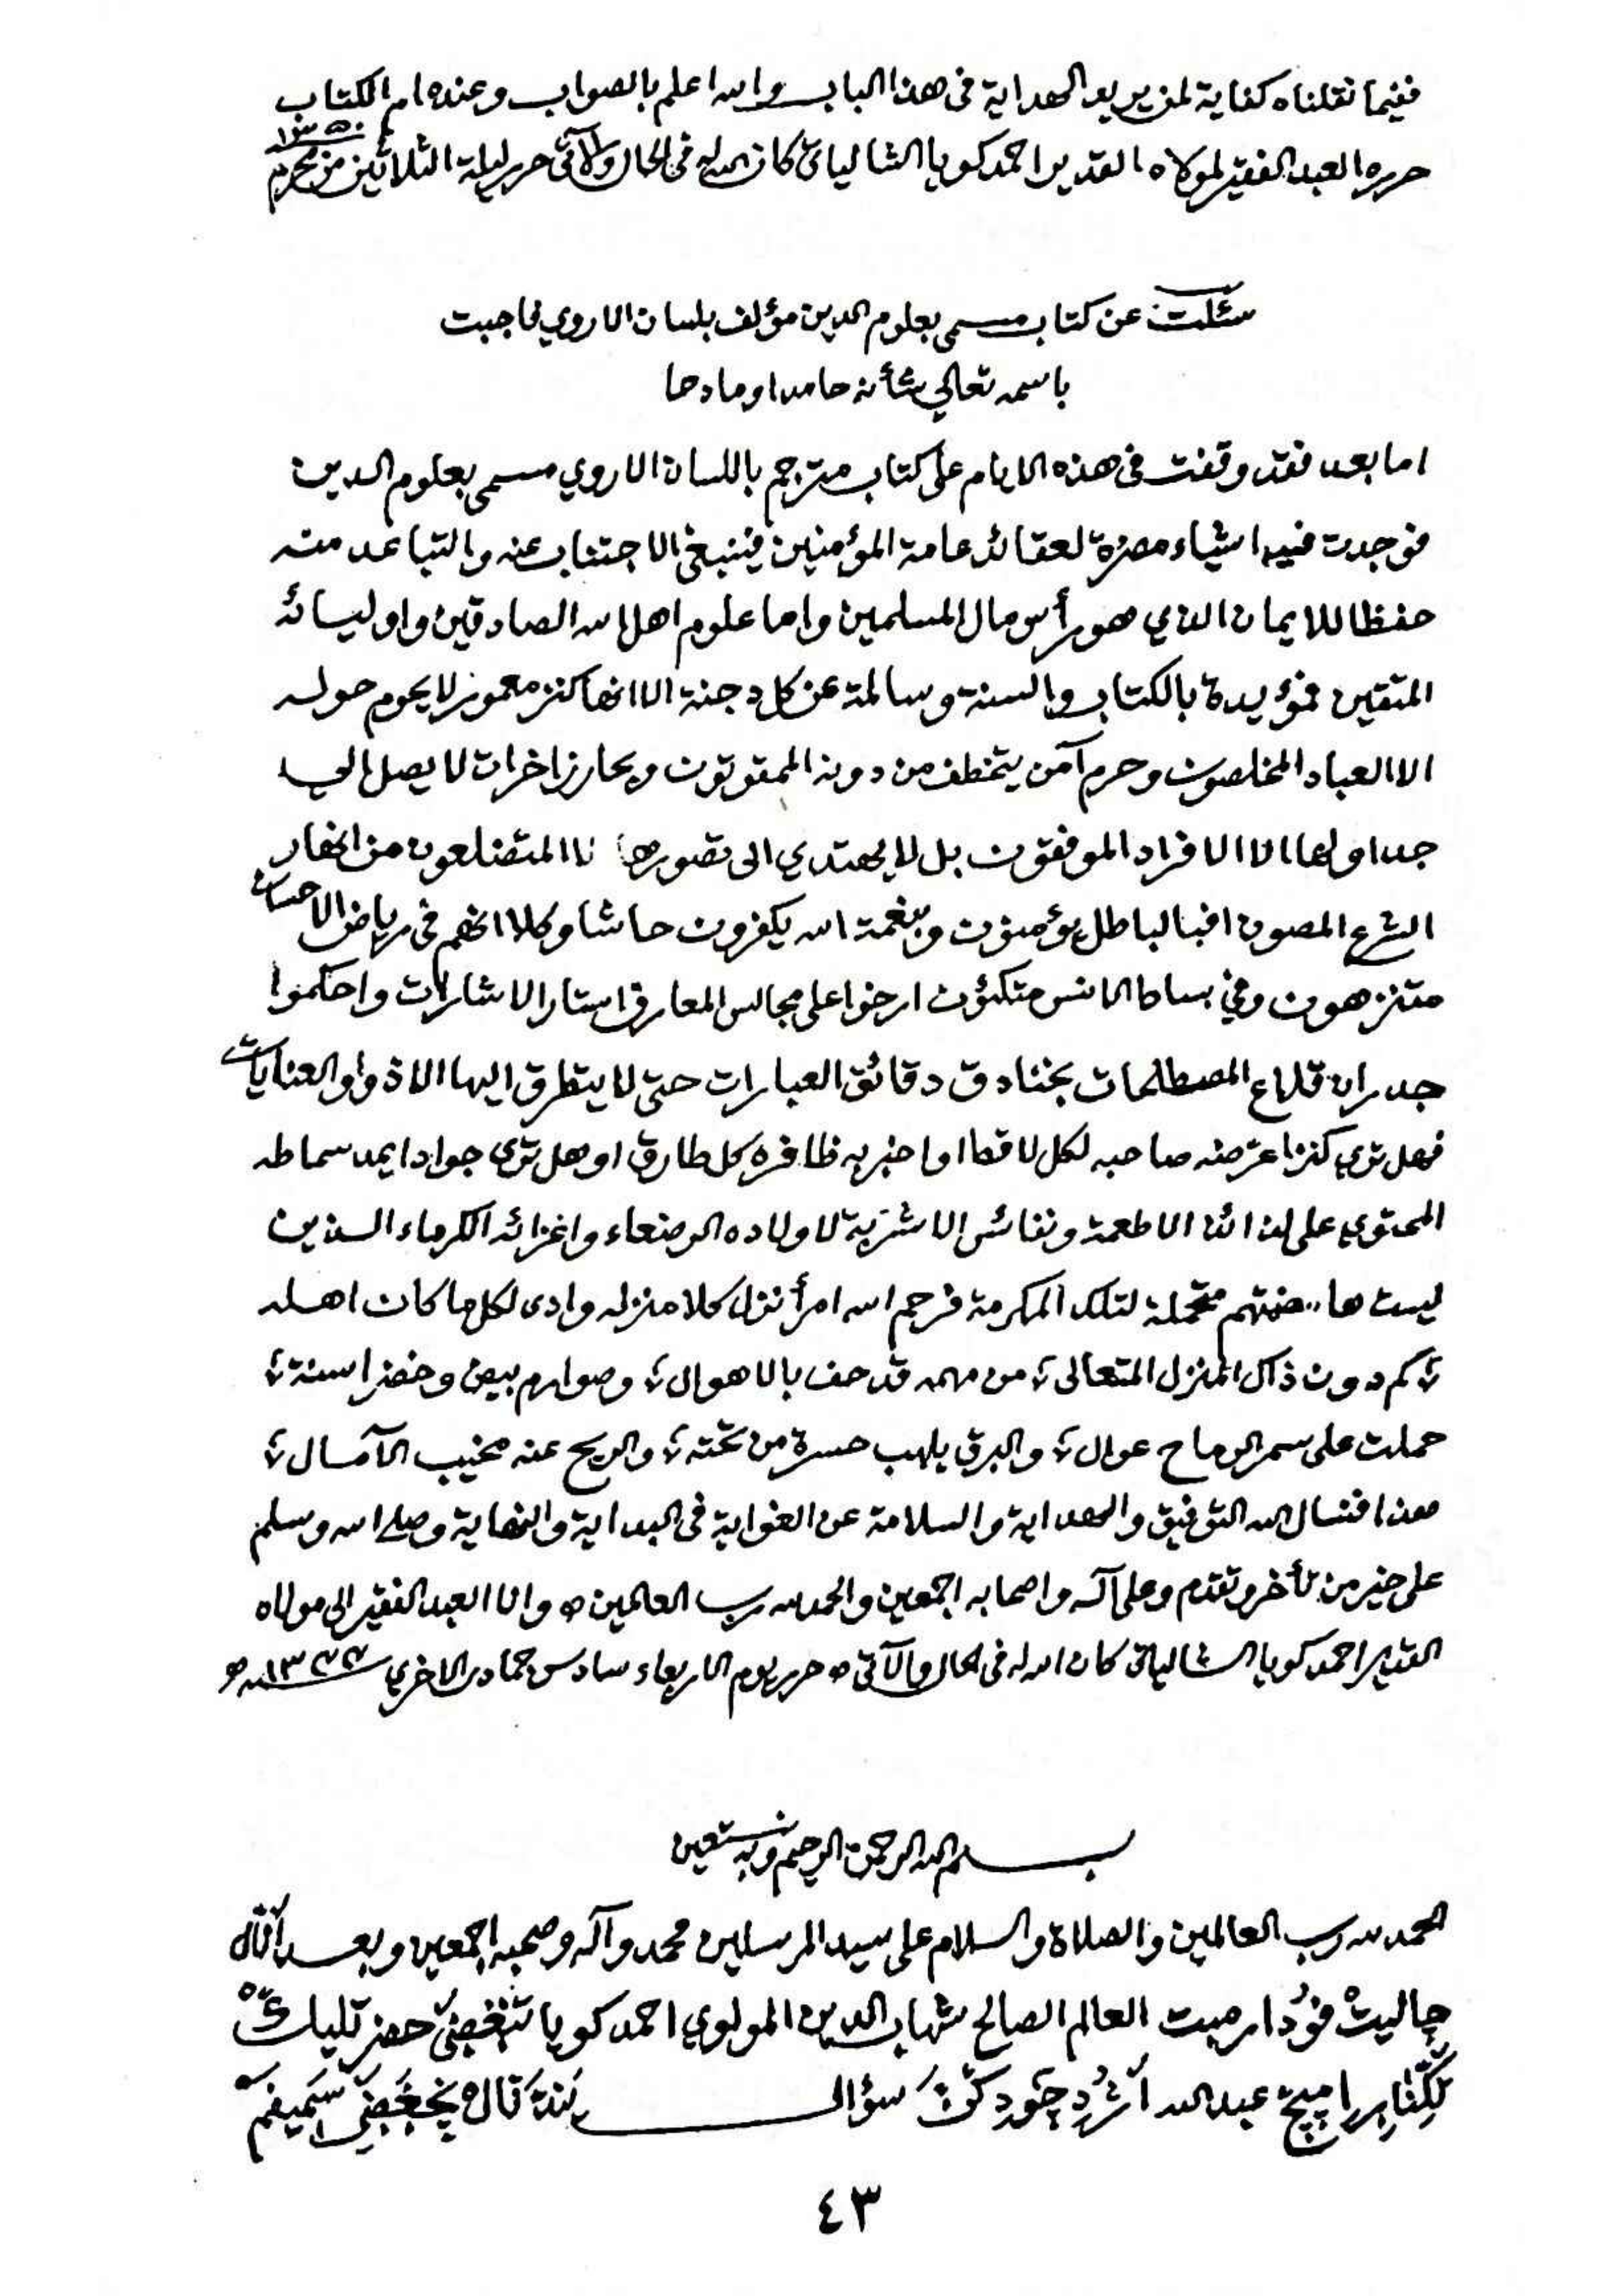 ففيما نقلناه كفاية لمن يريد الهداية في هذا الباب والله اعلم بالصواب وعنده ام الكتاب
حرره العبد الفقير لمولاه القدير احمد كويا الشالياتي كان الله له في الحال والآتي حرر ليلة الثلاثين من محرم
سئلت عن كتاب مسمى بعلوم الدين مؤلف بلسان الاروي فاجبت
باسمه تعالى شأنه حامدا ومادحا
اما بعد فقد وقفت في هذه الايام على كتاب مترجم باللسان الاروي مسمى بعلوم الدين
فوجدت فيه اشياء مضرة لعقائد عامة المؤمنين فينبغي الاجتناب عنه والتباعد منه
حفظا للايمان الذي هو رأس مال المسلمين واما علوم اهل الله الصادقين واوليائه
المتقين فمؤيدة بالكتاب والسنة وسالمة عن كل دجنة الا انها كنز معمور لا يحوم حوله
الا العباد المخلصون وحرم آمن يتخطف من دونه الممقوتون وبحار زاخرات لا يصل الى
جداولها الا الافراد الموفقون بل لا يهتدي الى تصورها المتضلعون من انهار
الشرع المصون افبالباطل يؤمنون وبنعمة الله يكفرون حاشا وكلا انهم في رياض الاحسان
متنزهون وفي بساط الانس متكئون ارخوا على مجالس المعارف استار الاشارات واحكموا
جدران قلاع المصطلحات بخنادق دقائق العبارات حتى لا يتطرق اليها الا ذووا العنايات
فهل ترى كنزا عرضه صاحبه لكل لاقط او اخبر به ظافره كل طارق او هل ترى جوادا يمد سماطه
المحتوي على لذائذ الاطعمة ونفائس الاشربة لاولاده الرضعاء واعزائه الكرماء الذين
ليست هاضمتهم متحملة لتلك المكرمة فرحم الله امرأ نزل كلا منزله وادى لكل ما كان اهله
كم دون ذاك المنزل المتعالى من مهمه قد حف بالاهوال وصوارم بيض وخضر اسنة
حملت على سمر الرماح عوال والبرق يلهب حسرة من تحته والريح عنه مخيب الآمال
هذا فنسال الله التوفيق والهداية والسلامة عن الغواية في البداية والنهاية وصلى الله وسلم
على خير من تأخر وتقدم وعلى آله واصحابه اجمعين والحمد لله رب العالمين وانا العبد الفقير الى مولاه
القدير احمد كويا الشالياتي كان الله له في الحال والآتي حرر يوم الاربعاء سادس جمادى الاخرى
بسم الله الرحمن الرحيم وبه نستعين
الحمد لله رب العالمين والصلاة والسلام على سيد المرسلين محمد وآله وصحبه اجمعين وبعد
العالم الصالح شهاب الدين المولوي احمد كويا
عبد الله سؤال
٤٣